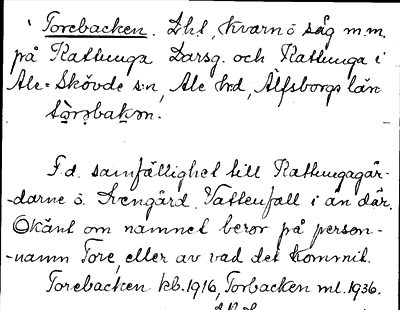 Torebacken. Lht, kvarn o såg m.m.
på Rattunga Darsg. och Rattunga i
Ale-Skövde s:n, Ale hd, Älfsborgs län
F.d. samfällighet till Rattungagår-
-darne o. Svengård. Vattenfall i ån där.
Okänt om namnet beror på person-
-namn Tore, eller av vad det kommit.
Torebacken kb. 1916, Torbacken ml. 1936.